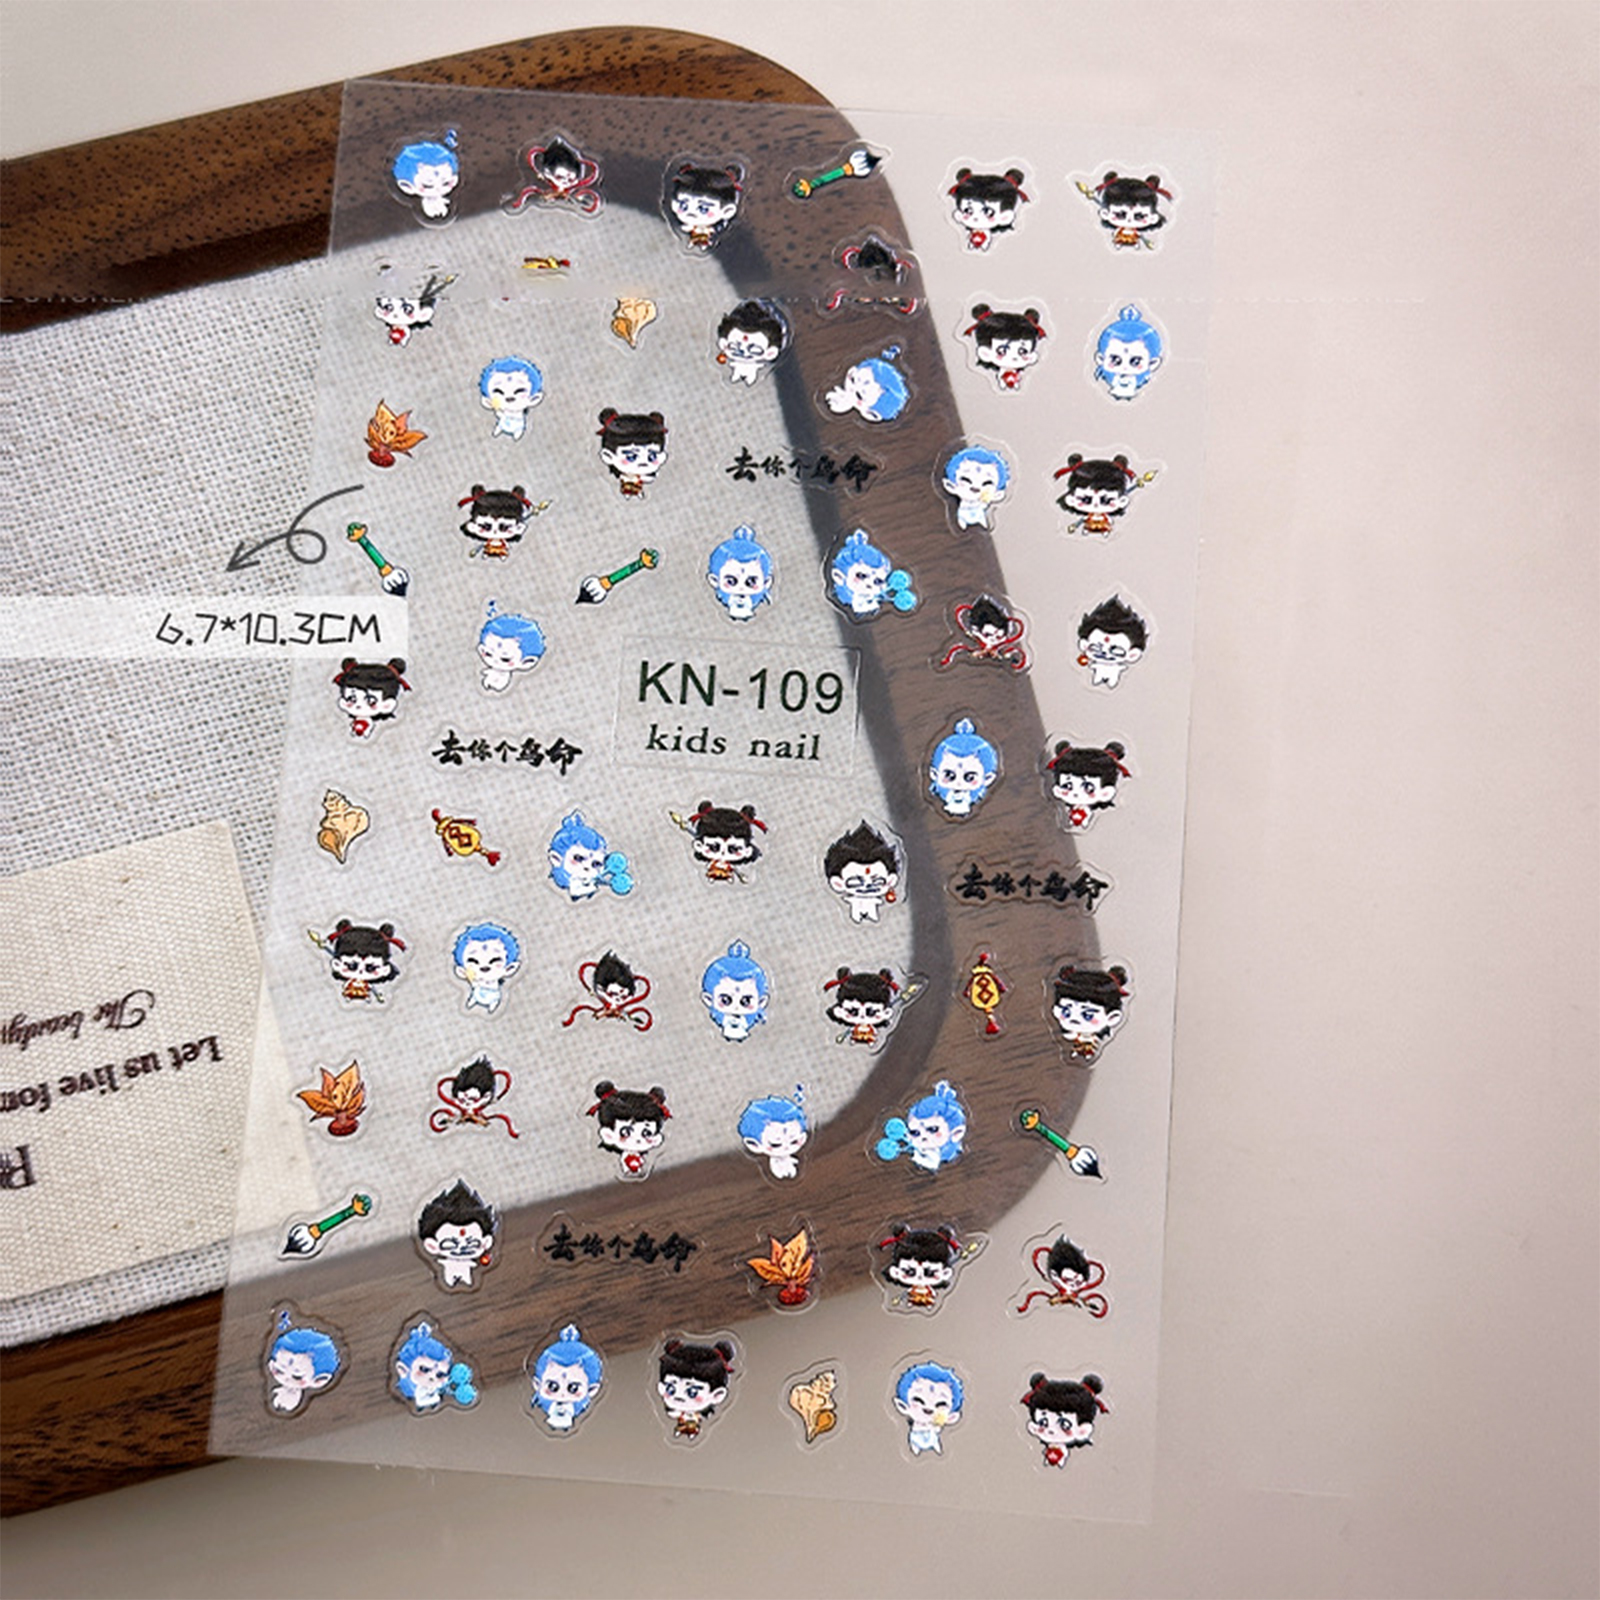 去你个鸟命
6.7*10.3CM
KN-109
kids nail
去你个鸟命
去你个鸟命
The beauty
Let us live for
去你个鸟命